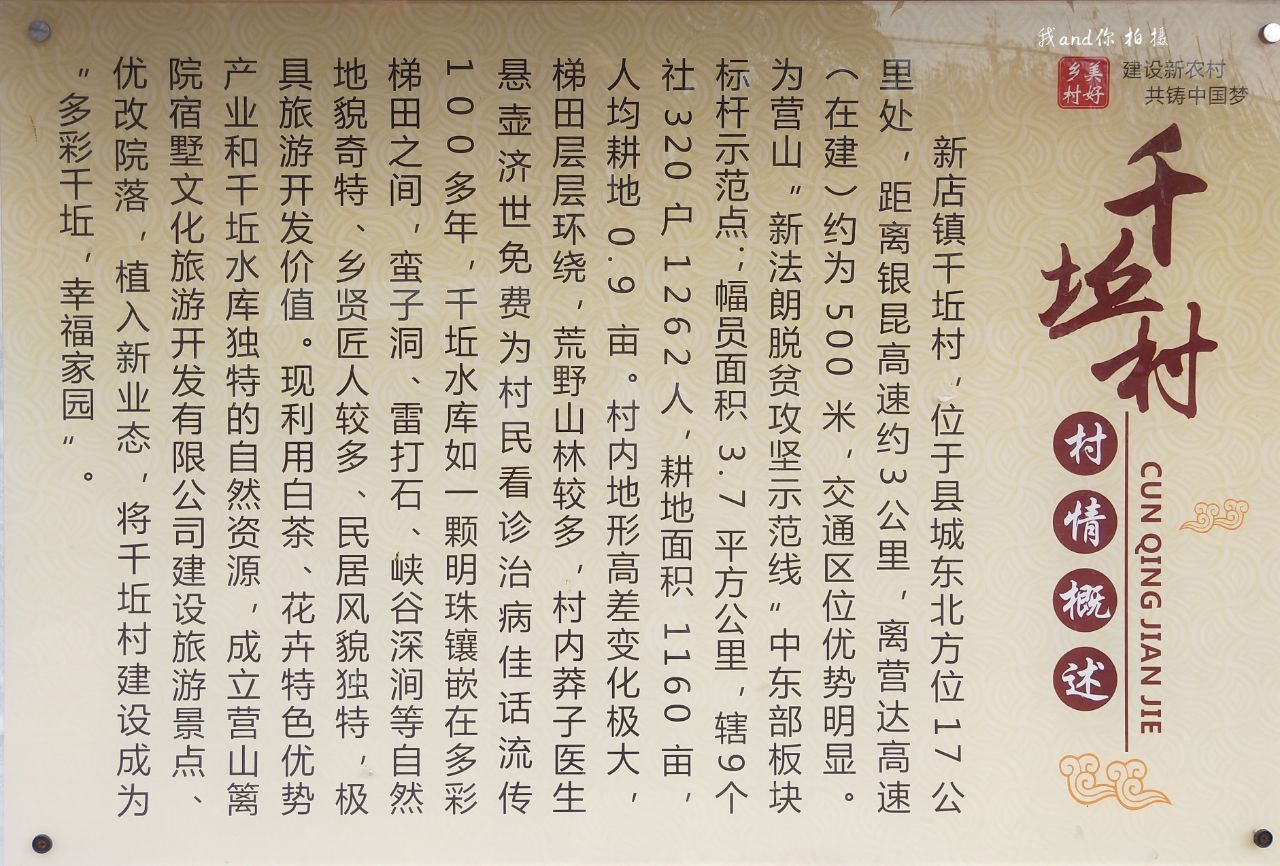 我and你 拍摄
美好乡村
建设新农村
共铸中国梦
千坵村
村情概述
CUN QING JIAN JIE
新店镇千坵村，位于县城东北方位17公
里处，距离银昆高速约3公里，离营达高速
（在建）约为500米，交通区位优势明显。
为营山“新法朗脱贫攻坚示范线”中东部板块
标杆示范点；幅员面积3.7平方公里，辖9个
社320户1262人，耕地面积1160亩，
人均耕地0.9亩。村内地形高差变化极大，
梯田层层环绕，荒野山林较多，村内莽子医生
悬壶济世免费为村民看诊治病佳话流传
100多年，千坵水库如一颗明珠镶嵌在多彩
梯田之间，蛮子洞、雷打石、峡谷深涧等自然
地貌奇特、乡贤匠人较多、民居风貌独特，极
具旅游开发价值。现利用白茶、花卉特色优势
产业和千坵水库独特的自然资源，成立营山篱
院宿墅文化旅游开发有限公司建设旅游景点、
优改院落，植入新业态，将千坵村建设成为
“多彩千坵，幸福家园”。